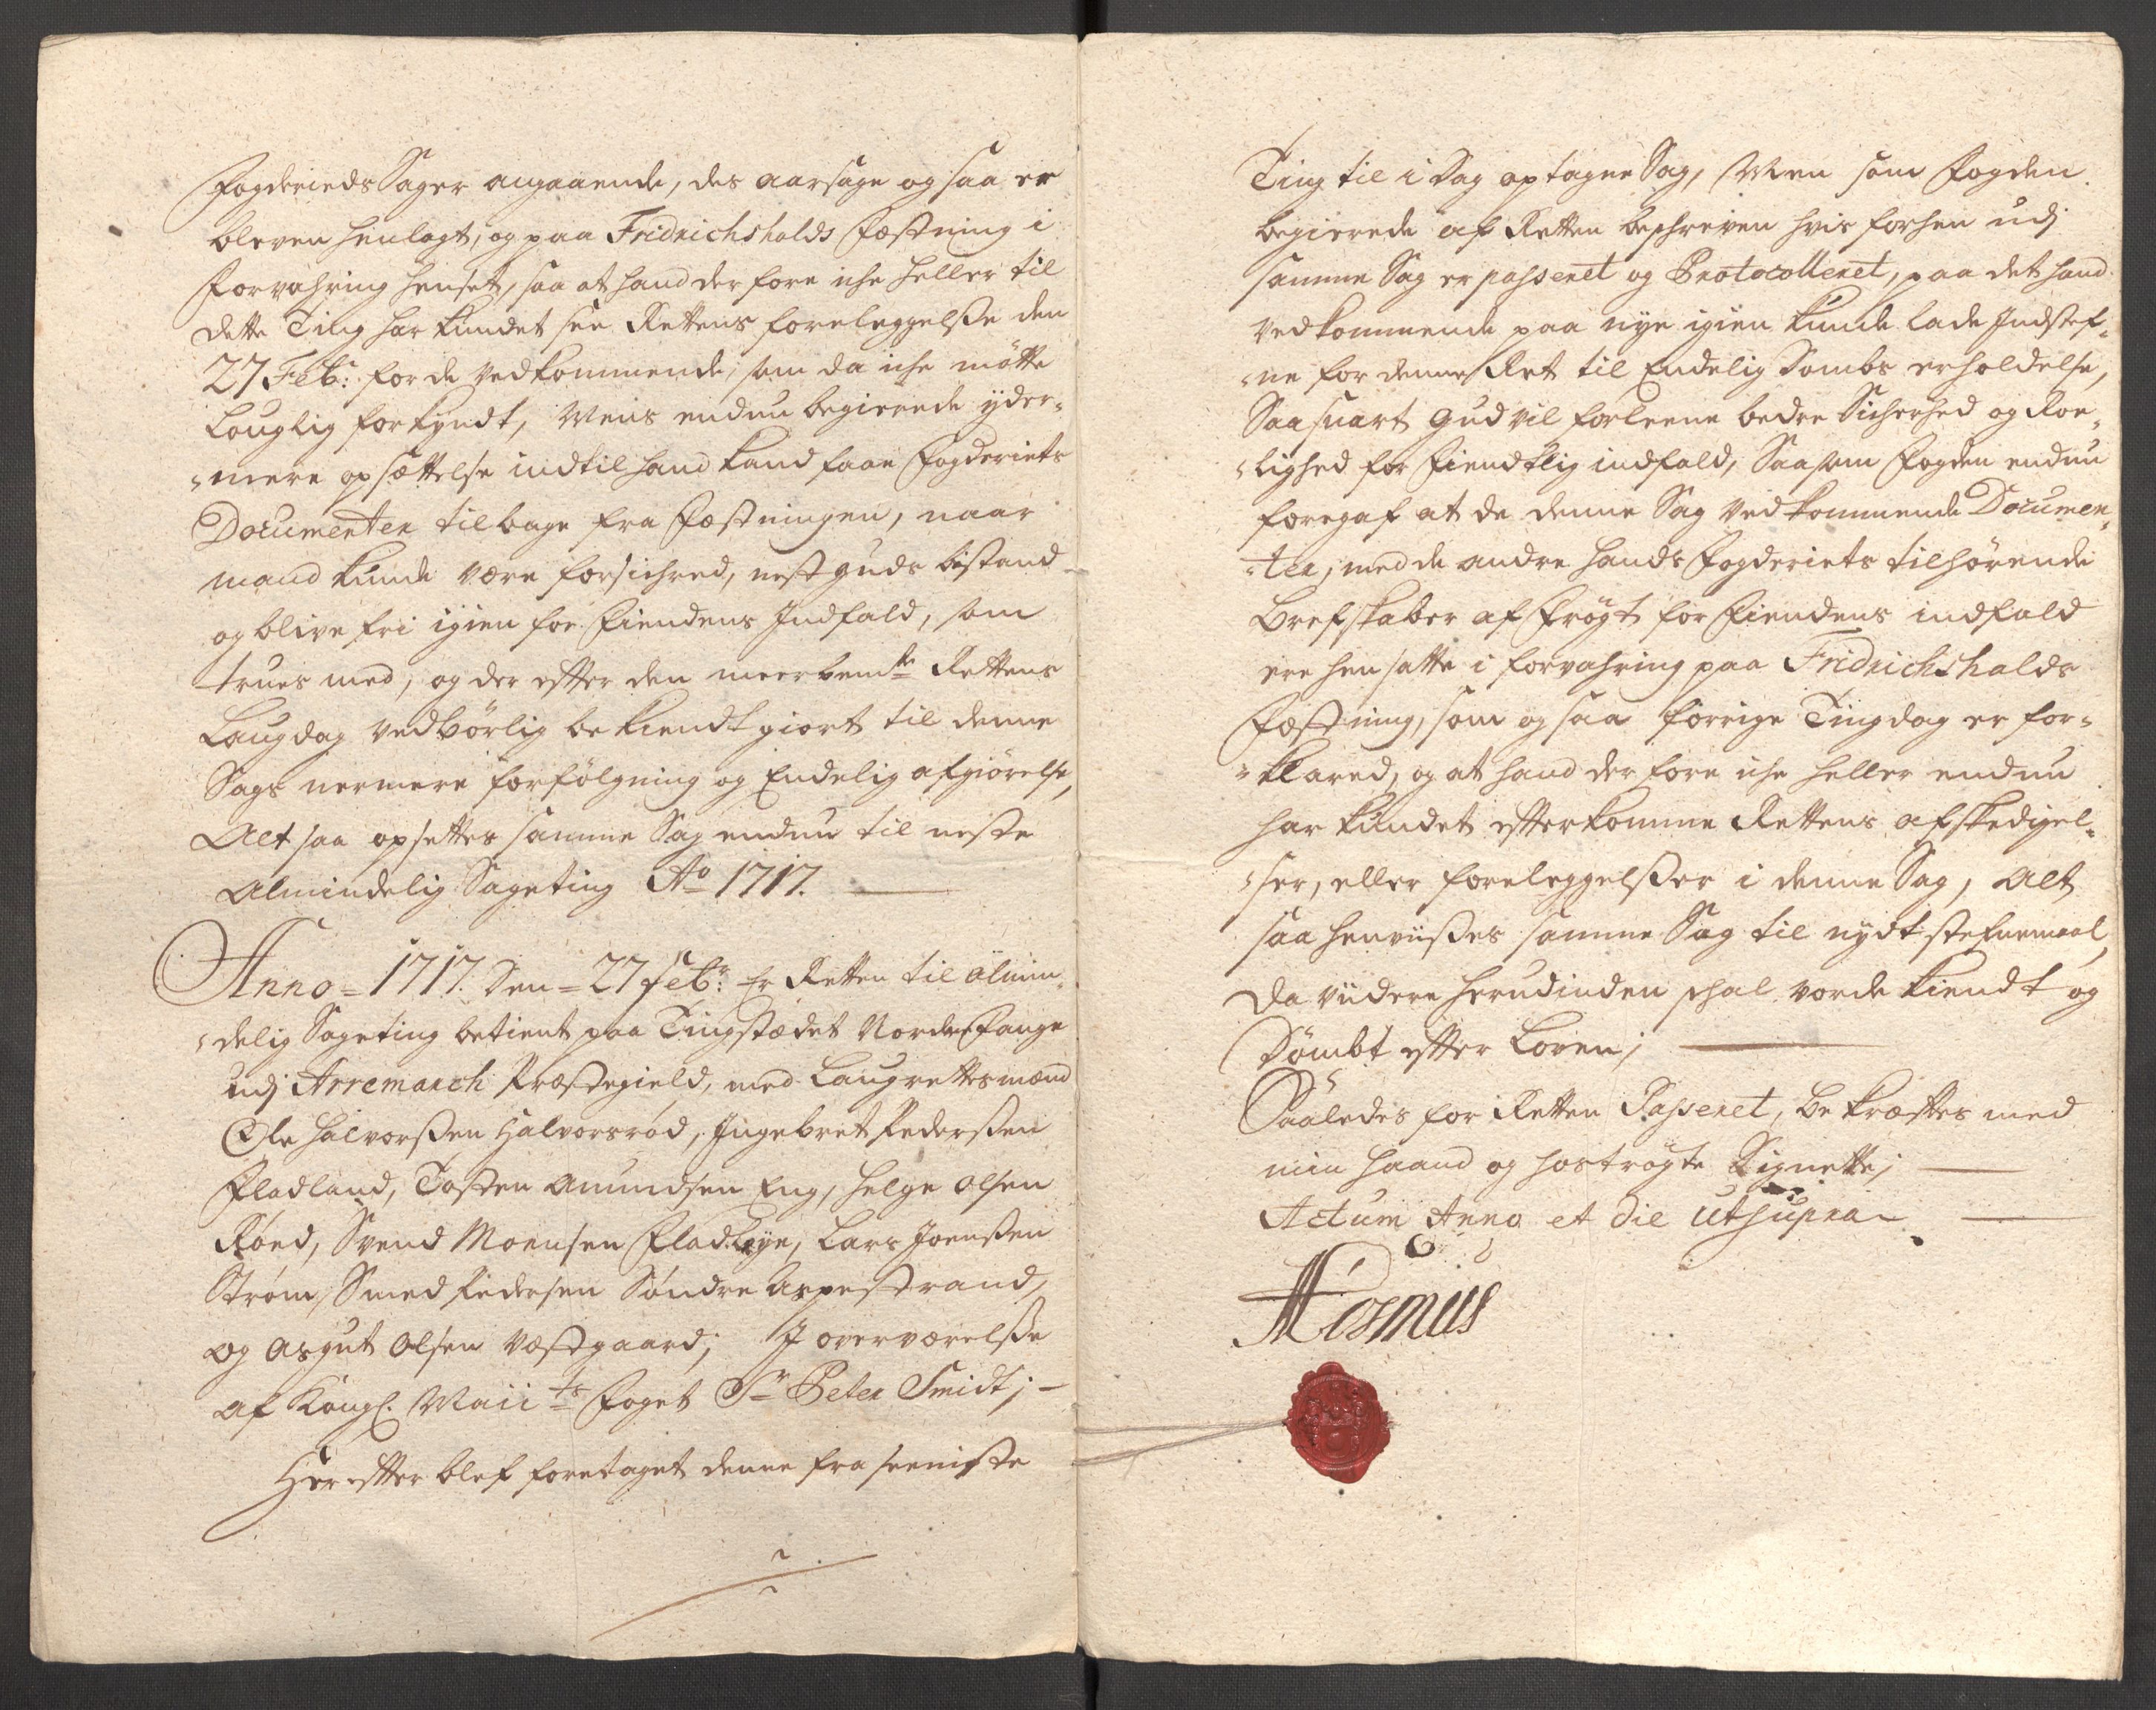 Fogderieds Sager angaaende, des aarsage og saa er
bleven henlagt, og paa Fridrichshalds Fæstning i
Forvahring henset, saa at hand der fore iche heller til
dette Ting har kundet see Rettens foreleggelsse den
27 Febr: for de vedkommende, som da iche mötte
Louglig forkyndt, Mens endnu begierede yder-
-mere opsættelse indtil hand kand faae Fogderiets
Documenter tilbage fra Fæstningen, naar
mand kunde være forsichred, nest guds bistand
og blive fri igien for Fiendens Indfald, som
trues med, og der efter den meerbemte Rettens
Laugdag vedbörlig bekiendtgiort til denne
Sags nermere forfölgning og Endelig afgiörelse,
Alt saa opsettes samme Sag endnu til neste
Almindelig Sageting Ao 1717.
Anno = 1717. Den = 27 febr: Er Retten til almin-
-delig Sageting betient paa Tingstædet Nordre Fange
udj Arremarch Præstegield, med Laugrettesmænd
Ole Halvorssen Halvorsröd, Ingebret Pederssen
Fladland, Tosten Amundsen Eng, Helge Olsen
Röed, Svend Monsen Fladbye, Lars Joenssen
Ström, Smed Pedersen Söndre Aspestrand,
og Asgut Olsen Væstgaard; I overværelsse
af Kongl. Maiits Foget Sr Peter Smidt; -
Her efter blef foretaget denne fra seeniste
Ting til i dag optagne Sag, Men som Fogden
begierede af Retten beschreven hvis forhen udj
samme Sag er passeret og Protocolleret, paa det hand
vedkommende paa nye igien kunde lade Indstef-
-ne for denne Ret til Endelig Dombs erholdelse,
Saa snart Gud vil forleene bedre Sicherhed og Roe-
-lighed for Fiendtlig indfald, Saasom Fogden endnu
foregaf at de denne Sag vedkommende Documen-
-ter, med de andre hands Fogderiets tilhörende
Brefskaber af Frögt for Fiendens indfald
ere hensatte i forvahring paa Fridrichshalds
Fæstning, som og saa forrige Tingdag er for-
-klared, og at hand der fore iche heller endnu
har kundet efterkomme Rettens afskedigel-
-ser, eller foreleggelsser i denne Sag, Alt
saa henviisses samme Sag til nydt stefnemaal,
da viidere herudinden schal vorde kiendt og
Dömbt efter Loven;
Saaledes for Retten Passeret, bekræftes med
min haand og hoströgte Signette;
Actum Anno et die utsupra
ARosmus